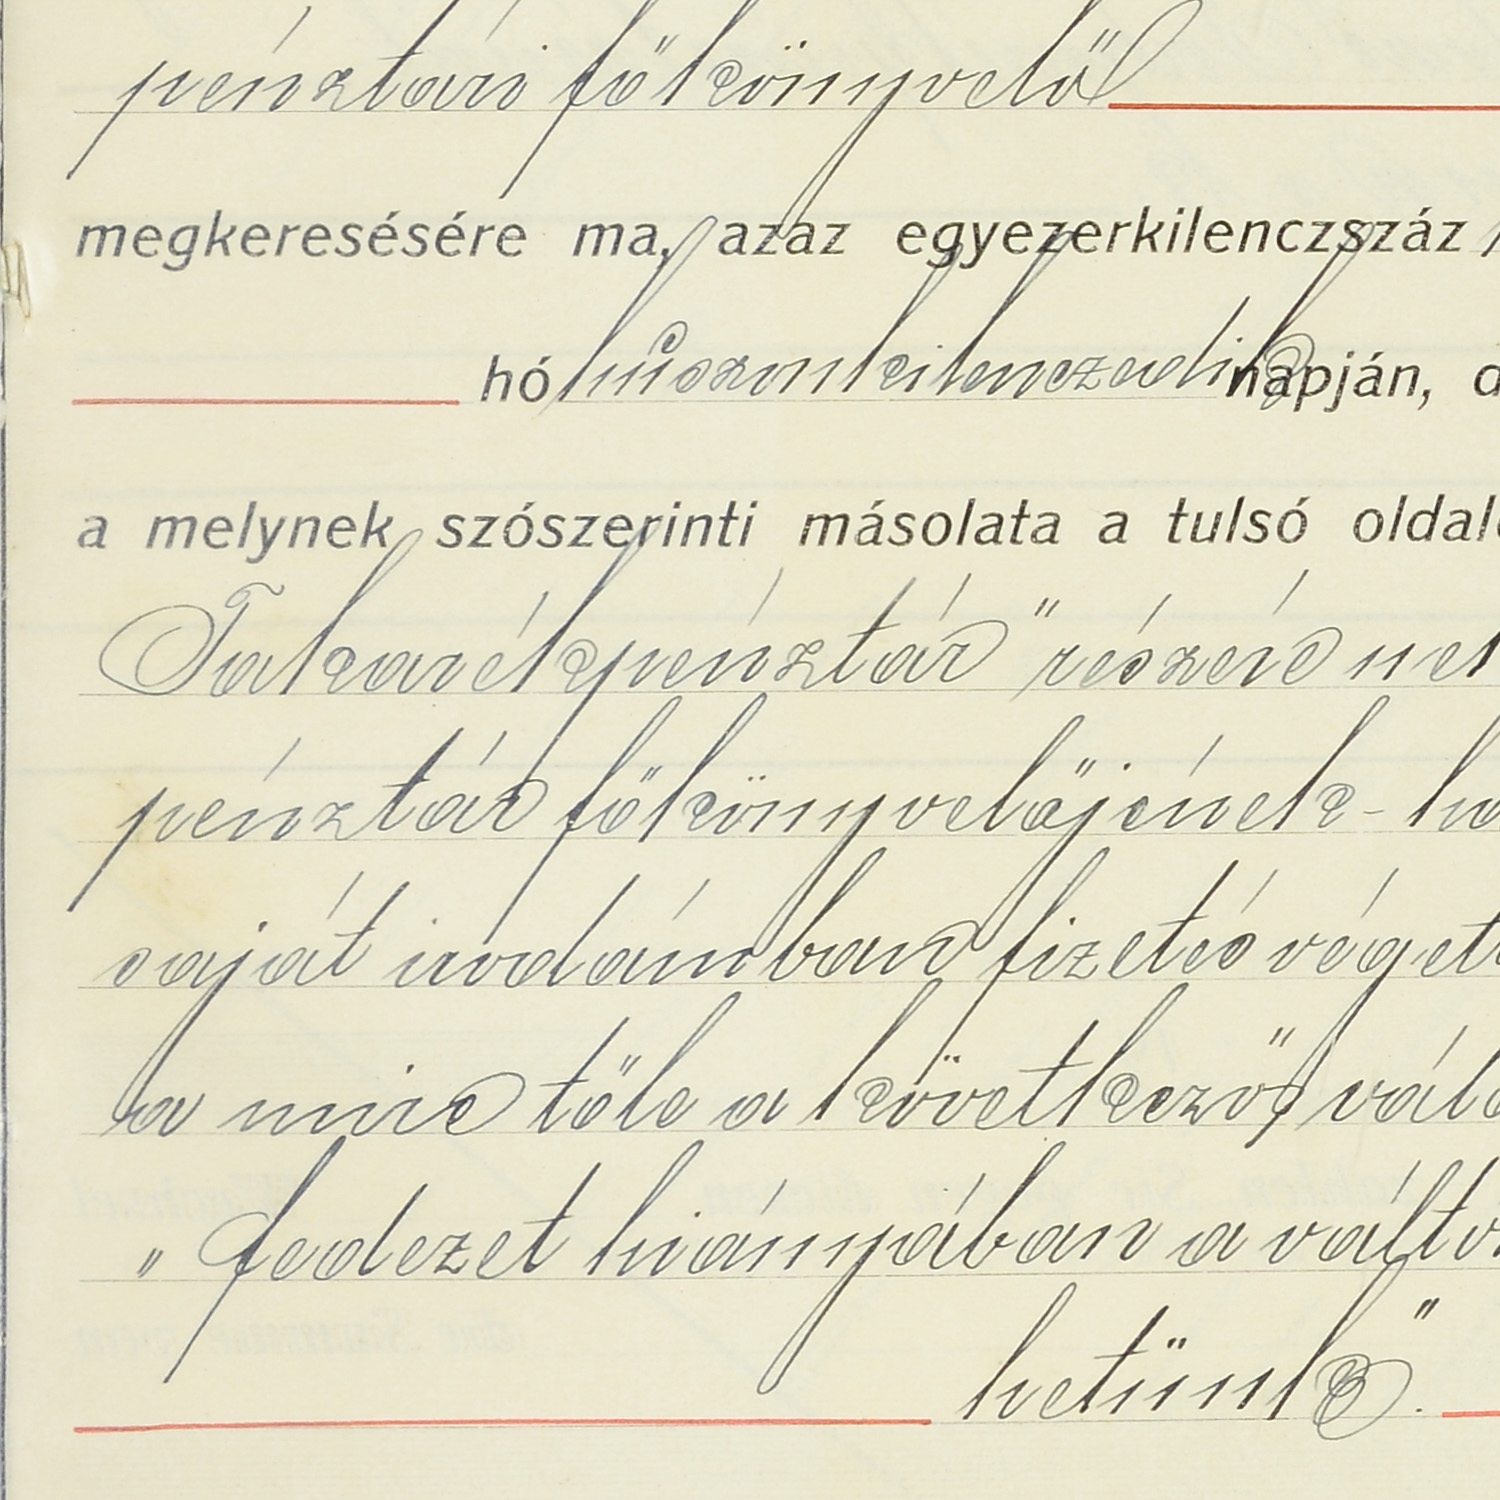 pénztári főkönyvelő
megkeresésére ma, azaz egyezerkilenczszáz
hó húszonkilenczedik napján, d
a melynek szószerinti másolata a tulsó oldal
Takarékpénztár" részére
pénztár főkönyvelőjének-
saját irodámban fizetés véget
a mire tőle a következő vál
„Fedezet hiányában a
hetünk".